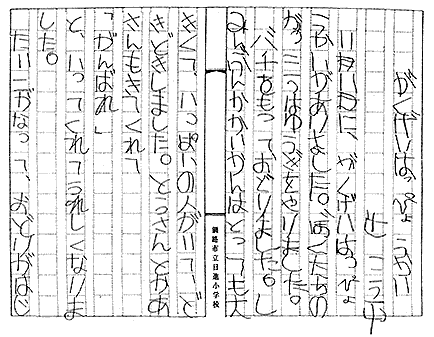 がくげいはっぴょうかい
こう
に、がくげいはっぴょ
うかいがありました。ぼくたちの
はゆうぎをやりました。
バチをもっておどりました。し
みんぶんかかいかんはとっても大
釧路市立日進小学校
きくて、いっぱいの人がいて、ど
きどきしました。とうさんとかあ
さんもきてくれて
「がんばれ」
と、いってくれてうれしくなりま
した。
たいこがなって、おどりがはじ